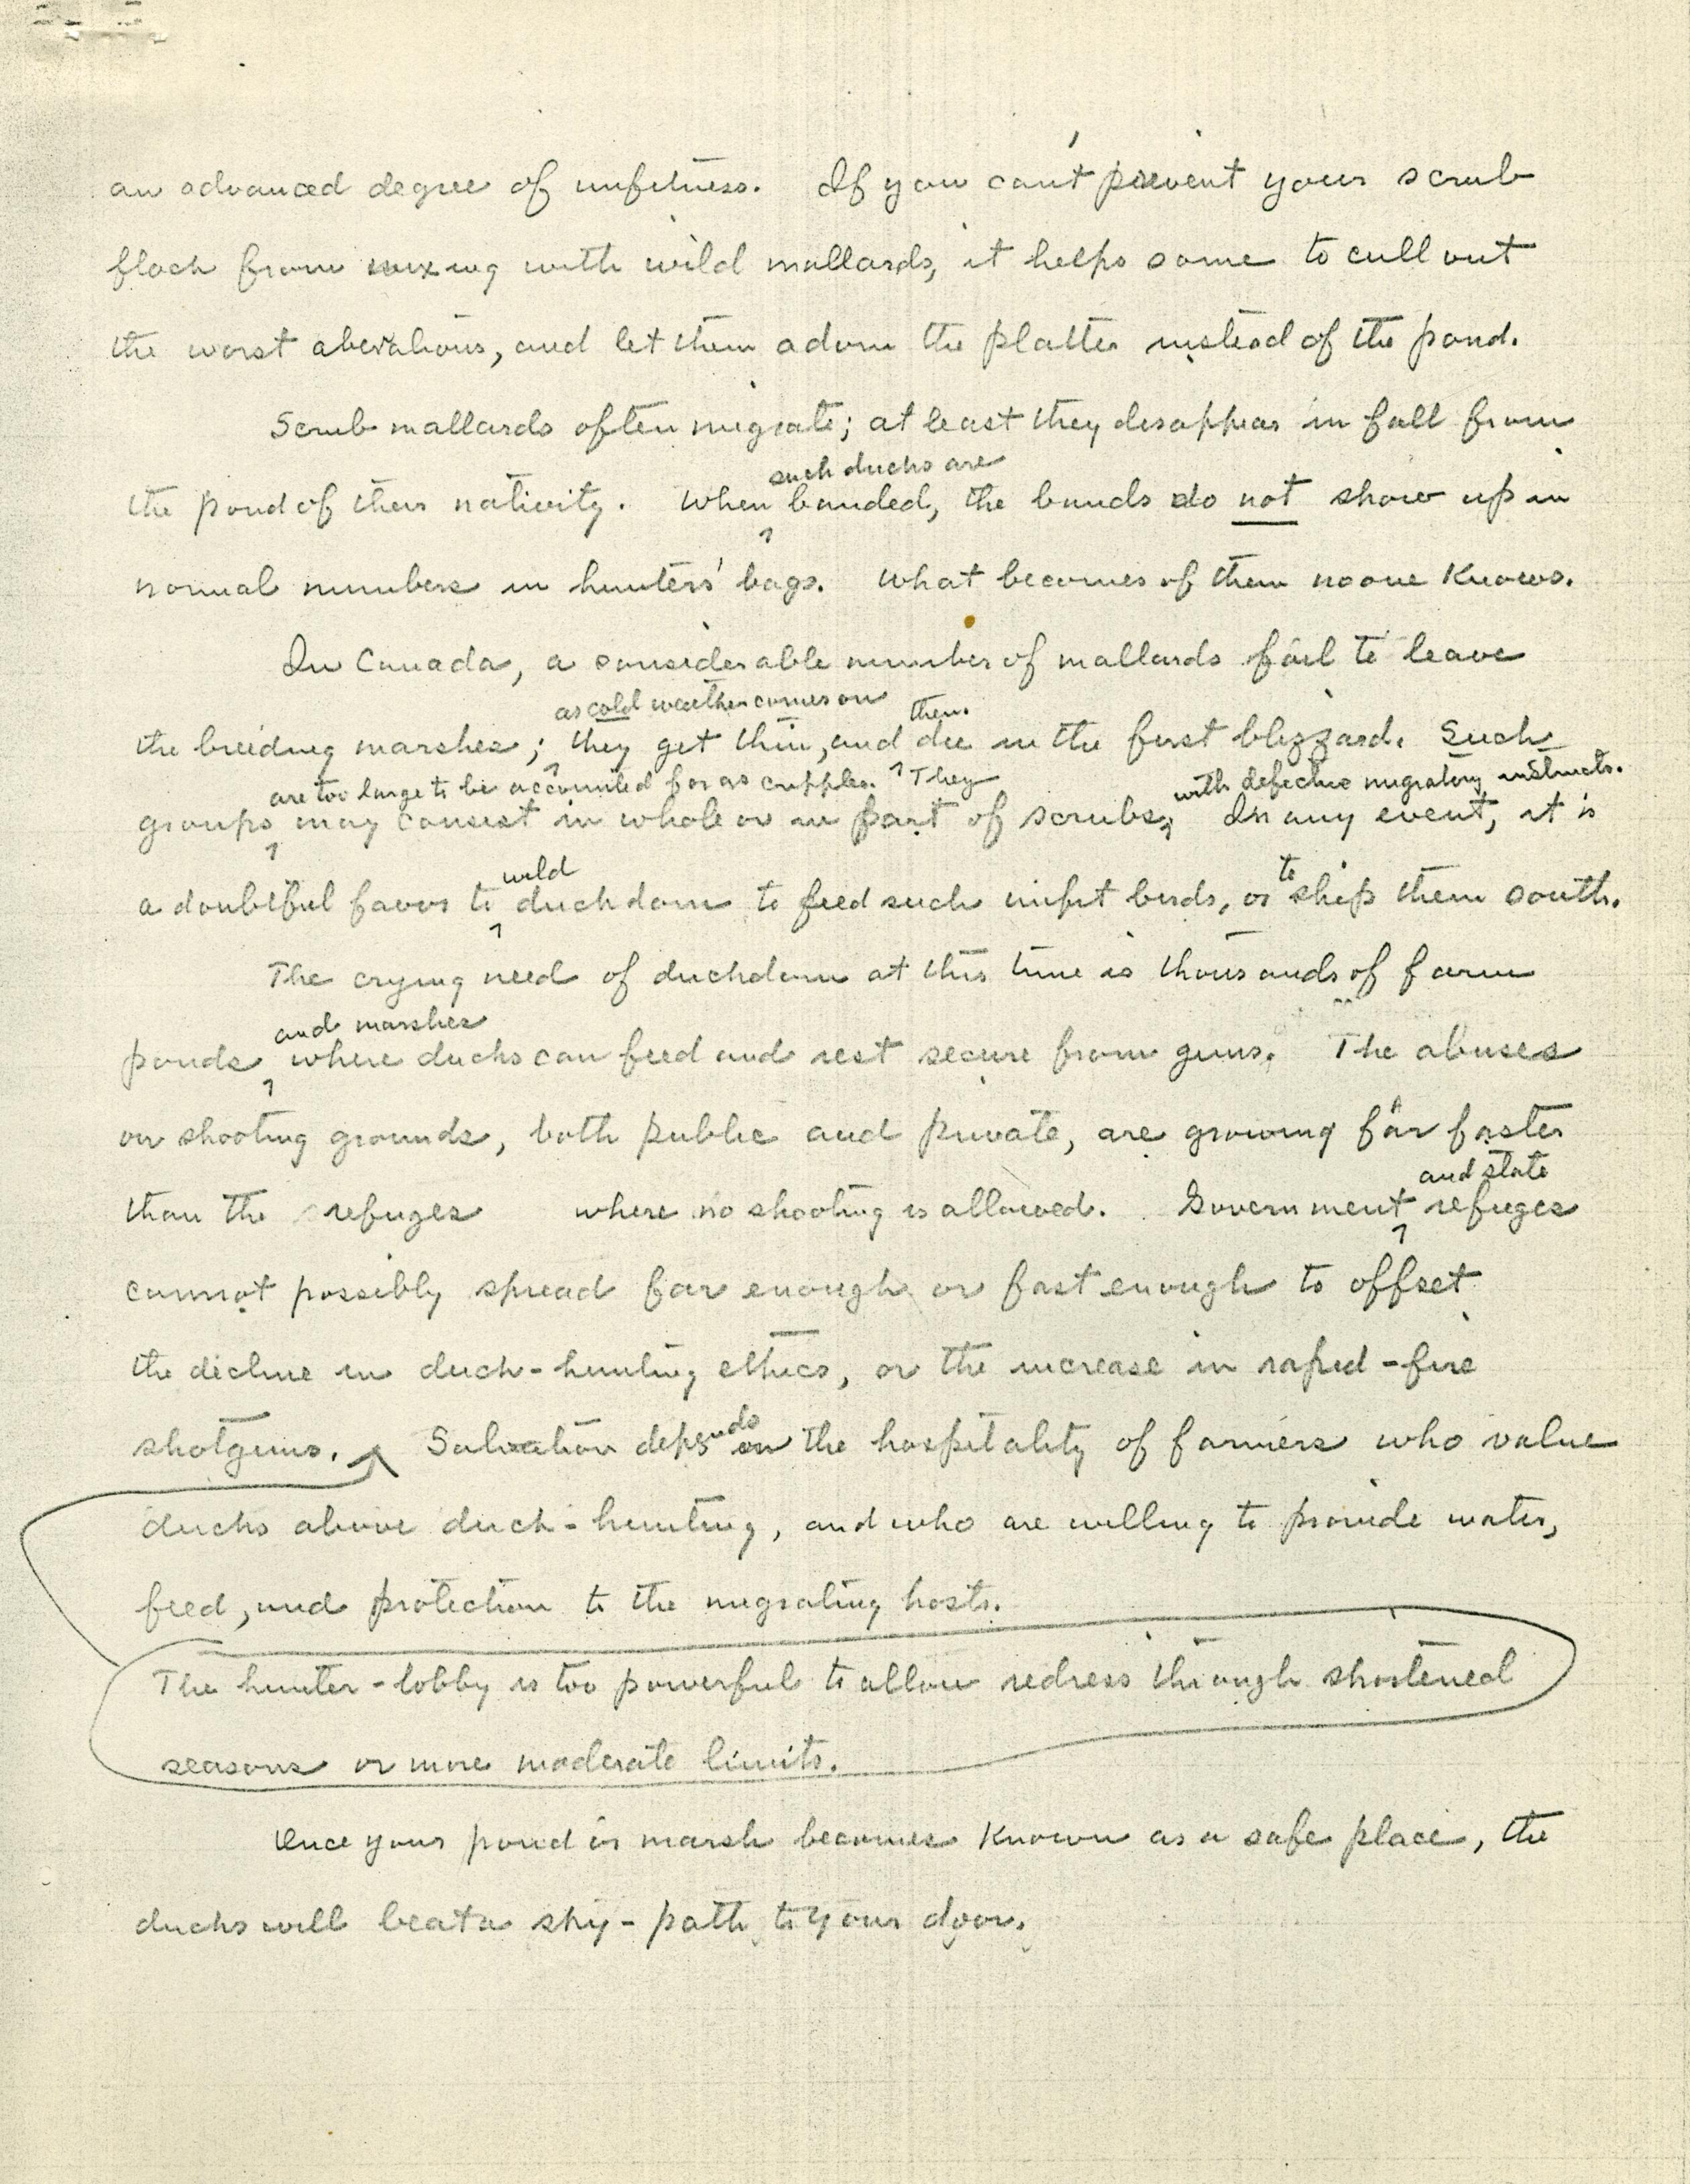 an advanced degree of unfitness. If you can't prevent your scrub
flock from mixing with wild mallards, it helps some to cull out
the worst aberations, and let them adorn the platter instead of the pond.
Scrub mallards often migrate; at least they disappear in fall from
such ducks are
the pond of their nativity. When banded, the bands do not show up in
normal numbers in hunters' bags. What becomes of them no one knows.
In Canada, a considerable number of mallards fail to leave
as cold weather comes on then
the breeding marshes; they get thin, and die in the first blizzard. Such
are too large to be accounted for as cripples. They with defective migratory instincts.
groups may consist in whole or in part of scrubs, In any event, it is
wild to
a doubtful favor to duckdom to feed such unfit birds, or ship them south.
The crying need of duckdom at this time is thousands of farm
and marshes
ponds where ducks can feed and rest secure from guns. The abuses
on shooting grounds, both public and private, are growing far faster
and state
than the refuges where no shooting is allowed. Government refuges
cannot possibly spread far enough or fast enough to offset
the decline in duck-hunting ethics, or the increase in rapid-fire
shotguns. Salvation depends on the hospitality of farmers who value
ducks above duck-hunting, and who are willing to provide water,
feed, and protection to the migrating hosts.
The hunter-lobby is too powerful to allow redress through shortened
seasons or more moderate limits.
Once your pond or marsh becomes known as a safe place, the
ducks will beat a sky-path to your door.